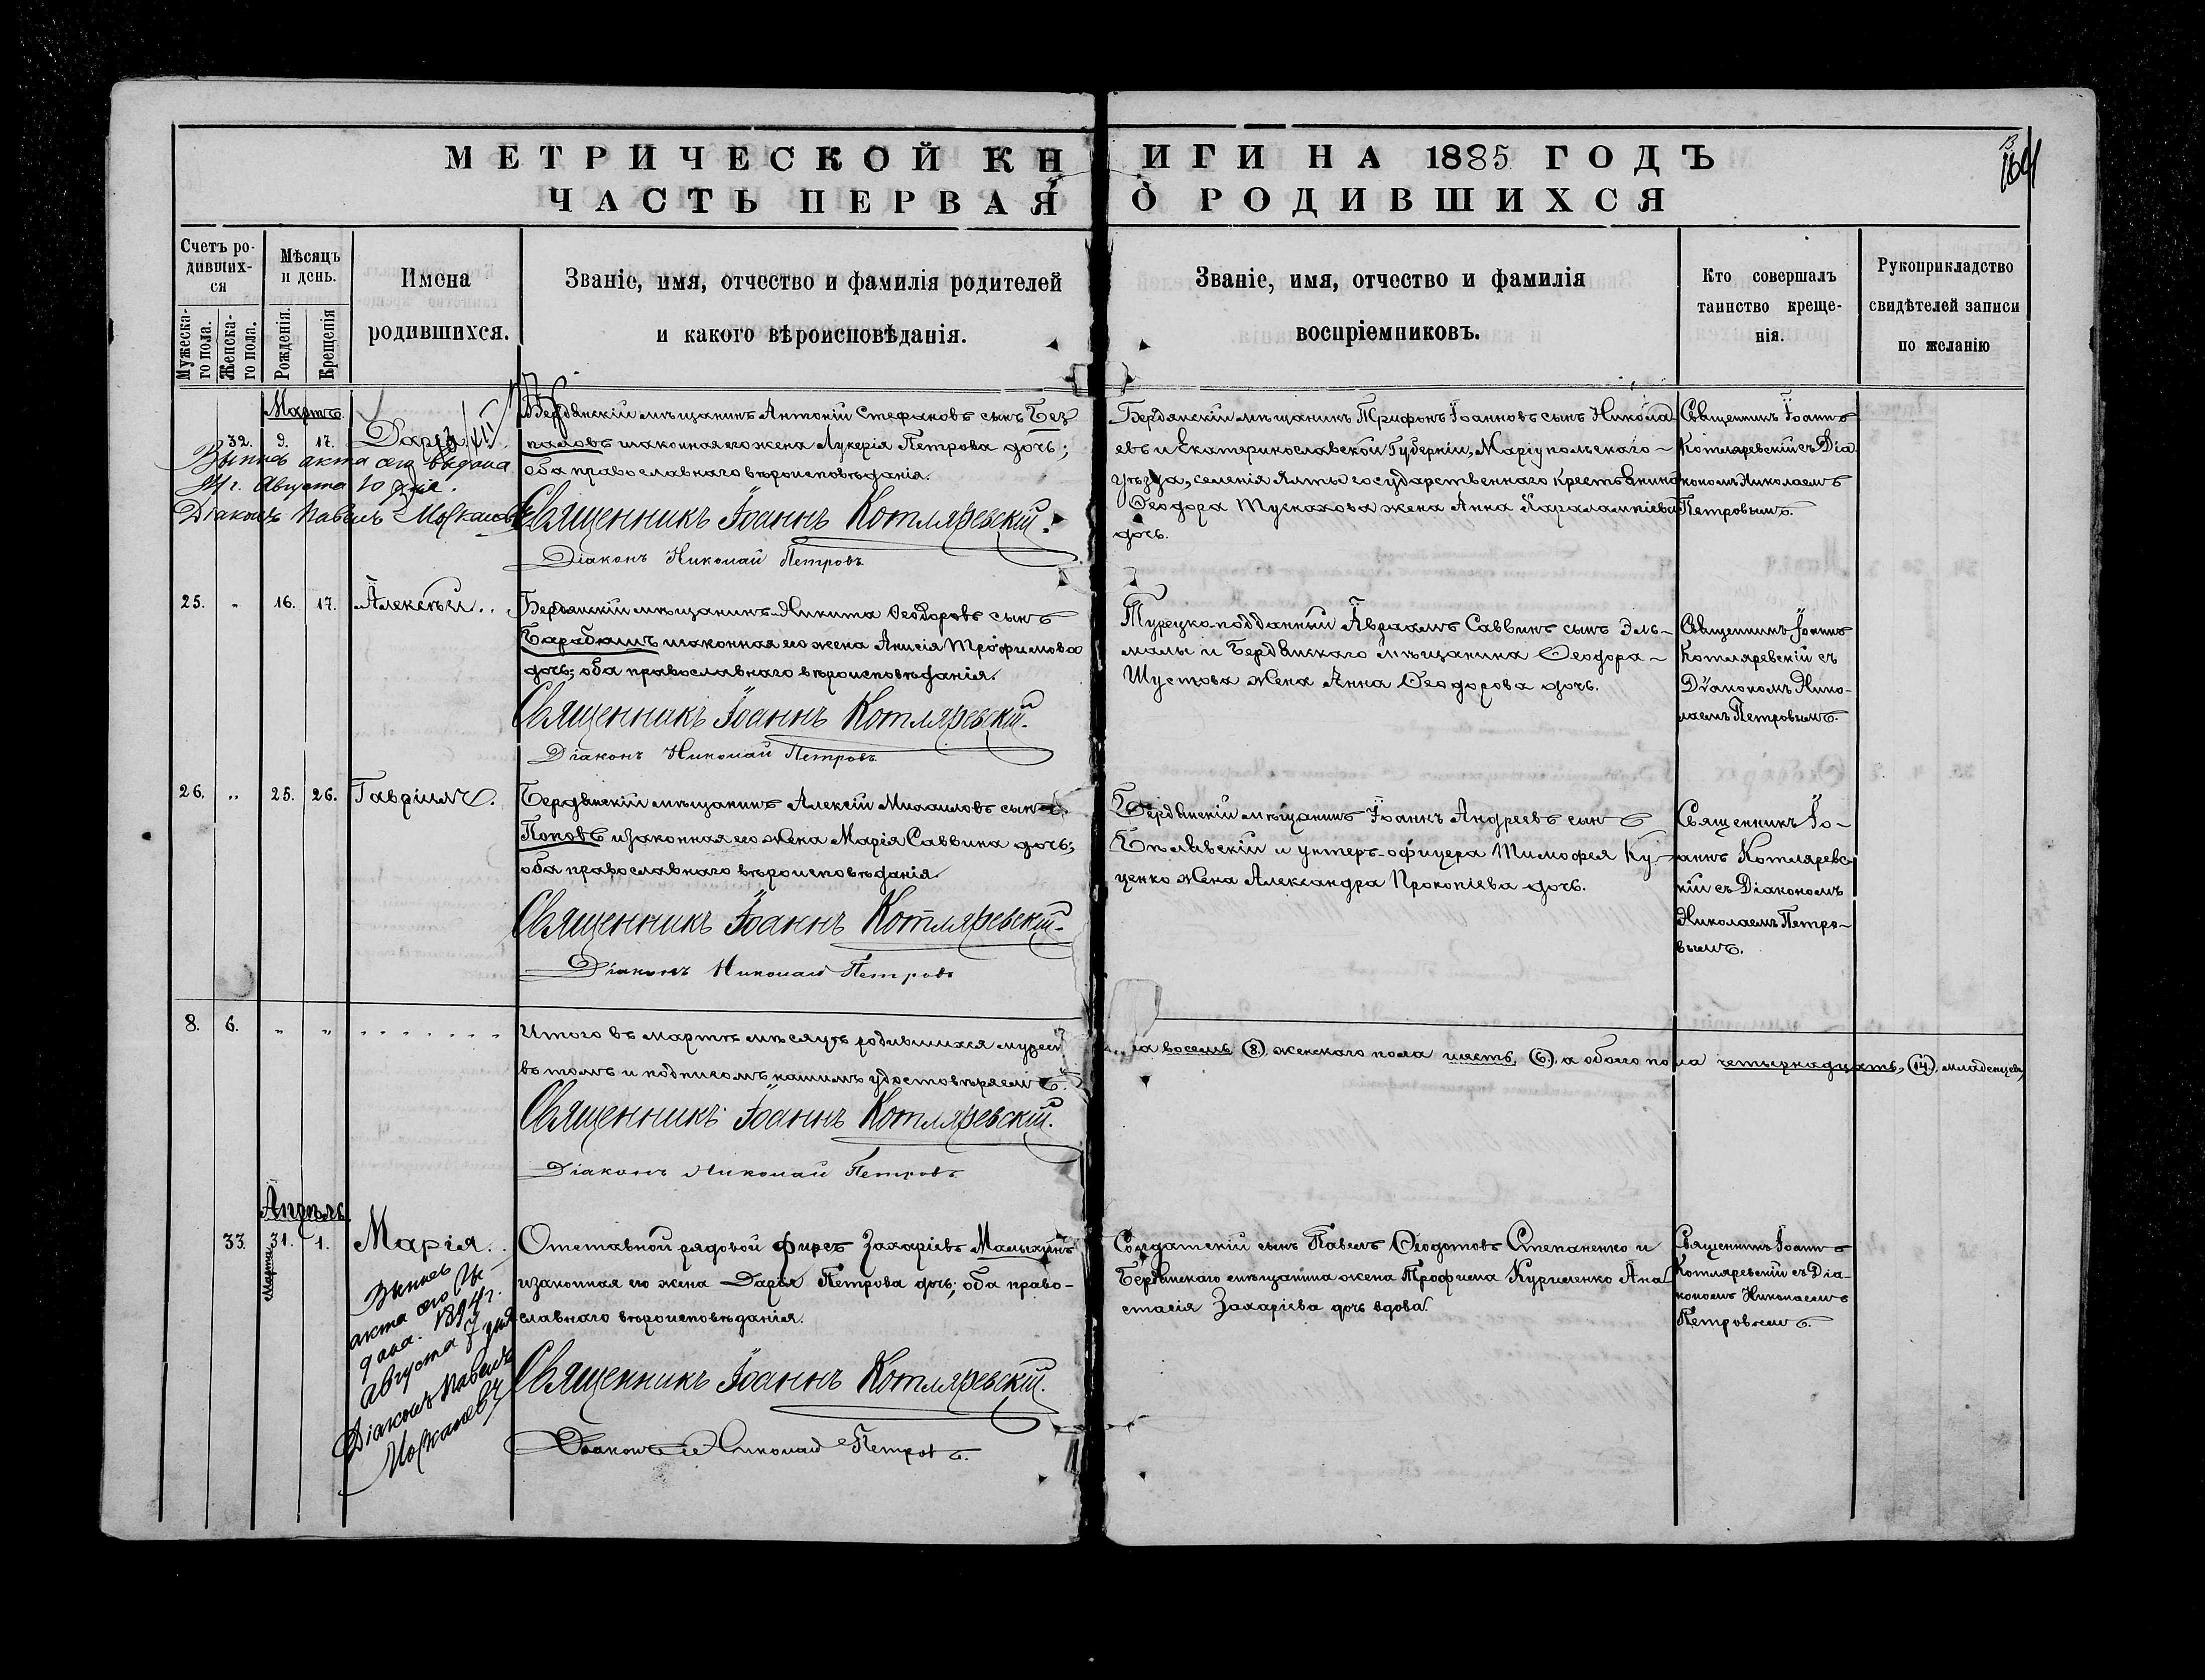 МЕТРИЧЕСКОЙ КНИГИ НА 1885 ГОДЪ
ЧАСТЬ ПЕРВАЯ О РОДИВШИХСЯ
164
Счетъ ро-
дивших-
ся
Мужеска-
го пола.
Женска-
го пола.
Мѣсяцъ
и день.
Рожденія.
Крещенія
Имена
родившихся.
Званіе, имя, отчество и фамилія родителей
и какого вѣроисповѣданія.
Званіе, имя, отчество и фамилія
воспріемниковъ.
Кто совершалъ
таинство креще-
нія.
Рукоприкладство
свидѣтелей записи
по желанію
Мартъ.
32. 9. 17. Дарія
Выпись акта сего выдана
Августа 10 дня.
Діаконъ Павелъ
Бердянскій мѣщанинъ Антоній Стефановъ сынъ Без
паловъ и законная его жена Лукерія Петрова дочь;
оба православнаго вѣроисповѣданія.
Священникъ Іоаннъ Котляревскій.
Діаконъ Николай Петровъ
Бердянскій мѣщанинъ Трифонъ Іоанновъ сынъ Никола
евъ и Екатеринославской Губерніи, Маріупольскаго
уѣзда, селенія Ялты государственнаго крестьянина
Ѳеодора жена Анна Харалампіева
дочь.
Священникъ Іоаннъ
Котляревскій съ Діа
кономъ Николаемъ
Петровымъ.
25. „ 16. 17. Алексѣй.
Бердянскій мѣщанинъ Никита Ѳеодоровъ сынъ
Барабашъ и законная его жена Анисія Трофимова
дочь; оба православнаго вѣроисповѣданія.
Священникъ Іоаннъ Котляревскій.
Діаконъ Николай Петровъ
Турецко-подданный Авраамъ Саввинъ сынъ Эль-
малы и Бердянскаго мѣщанина Ѳеодора
Шустова жена Анна Ѳеодорова дочь.
Священникъ Іоаннъ
Котляревскій съ
Діакономъ Нико-
лаемъ Петровымъ.
26. „ 25. 26. Гавріилъ.
Бердянскій мѣщанинъ Алексій Михаиловъ сынъ
Поповъ и законная его жена Марія Саввина дочь;
оба православнаго вѣроисповѣданія.
Священникъ Іоаннъ Котляревскій.
Діаконъ Николай Петровъ
Бердянскій мѣщанинъ Іоаннъ Андреевъ сынъ
Бѣлявскій и унтеръ-офицера Тимофея Ку-
ценко жена Александра Прокопіева дочь.
Священникъ Іо-
аннъ Котляревс
кій съ Діакономъ
Николаемъ Петро-
вымъ.
8. 6. „ „
Итого въ мартѣ мѣсяцѣ родившихся мужеск
ла восемь (8), женскаго пола шесть (6), а обоего пола четырнадцать, (14), младенцевъ,
въ томъ и подписомъ нашимъ удостовѣряемъ.
Священникъ Іоаннъ Котляревскій.
Діаконъ Николай Петровъ
Апрѣль
33. 31. 1. Марія.
Марта
Выпись
акта сего вы-
дана. 1894 г.
Августа 7 дня
Діаконъ Павелъ
Отставной рядовой Фирсъ Захаріевъ Малыхинъ
и законная его жена Дарья Петрова дочь; оба право-
славнаго вѣроисповѣданія.
Священникъ Іоаннъ Котляревскій.
Діаконъ Николай Петровъ.
Солдатскій сынъ Павелъ Ѳеодотовъ Степаненко и
Бердянскаго мѣщанина жена Трофима Куриленко Ана
стасія Захаріева дочь вдова.
Священникъ Іоаннъ
Котляревскій съ Діа-
кономъ Николаемъ
Петровымъ.